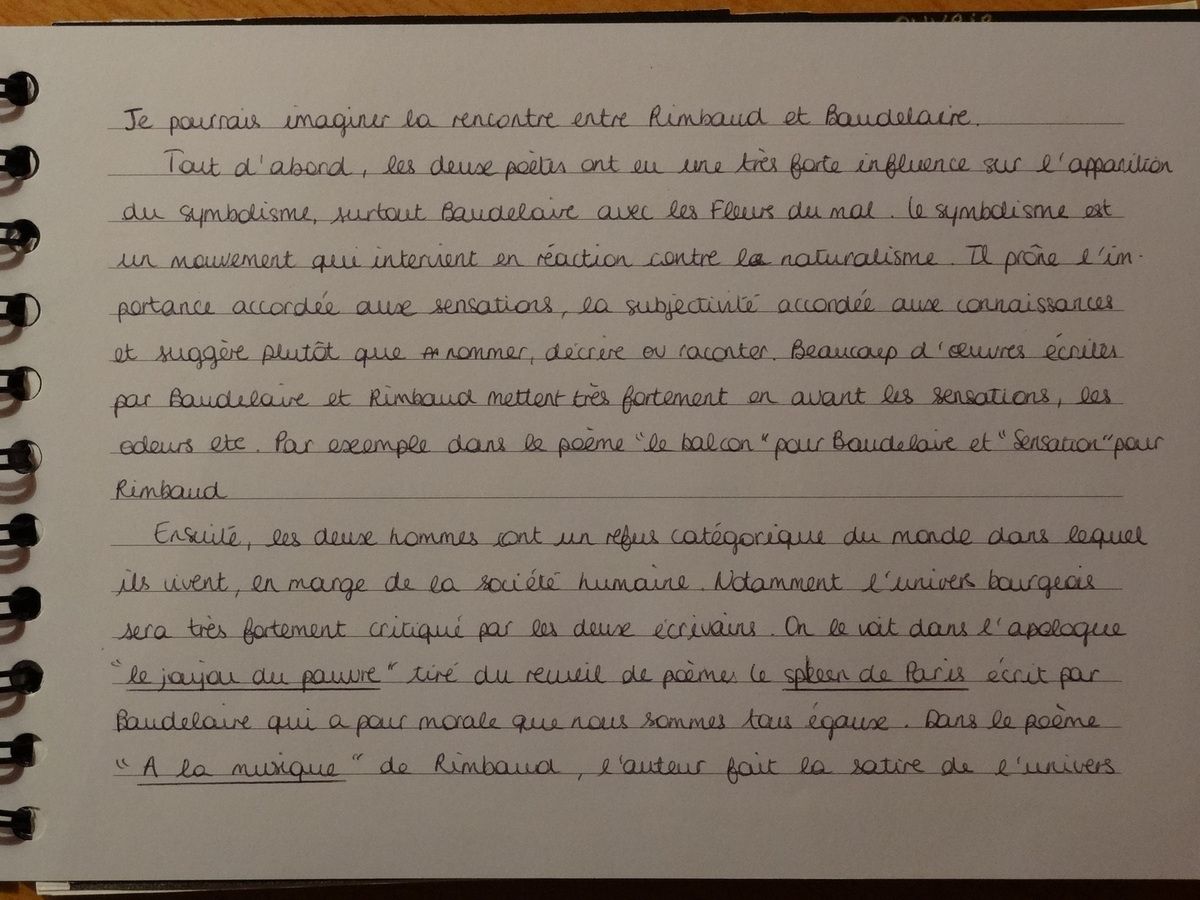 Je pourrais imaginer la rencontre entre Rimbaud et Baudelaire.
Tout d'abord, les deux poètes ont eu une très forte influence sur l'apparition
du symbolisme, surtout Baudelaire avec les Fleurs du mal. Le symbolisme est
un mouvement qui intervient en réaction contre le naturalisme. Il prône l'im-
portance accordée aux sensations, la subjectivité accordée aux connaissances
et suggère plutôt que nommer, décrire ou raconter. Beaucoup d'œuvres écrites
par Baudelaire et Rimbaud mettent très fortement en avant les sensations, les
odeurs etc. Par exemple dans le poème "le balcon" pour Baudelaire et "Sensation" pour
Rimbaud
Ensuite, les deux hommes ont un refus catégorique du monde dans lequel
ils vivent, en marge de la société humaine. Notamment l'univers bourgeois
sera très fortement critiqué par les deux écrivains. On le voit dans l'apologue
"le joujou du pauvre" tiré du recueil de poèmes le spleen de Paris écrit par
Baudelaire qui a pour morale que nous sommes tous égaux. Dans le poème
"A la musique" de Rimbaud, l'auteur fait la satire de l'univers